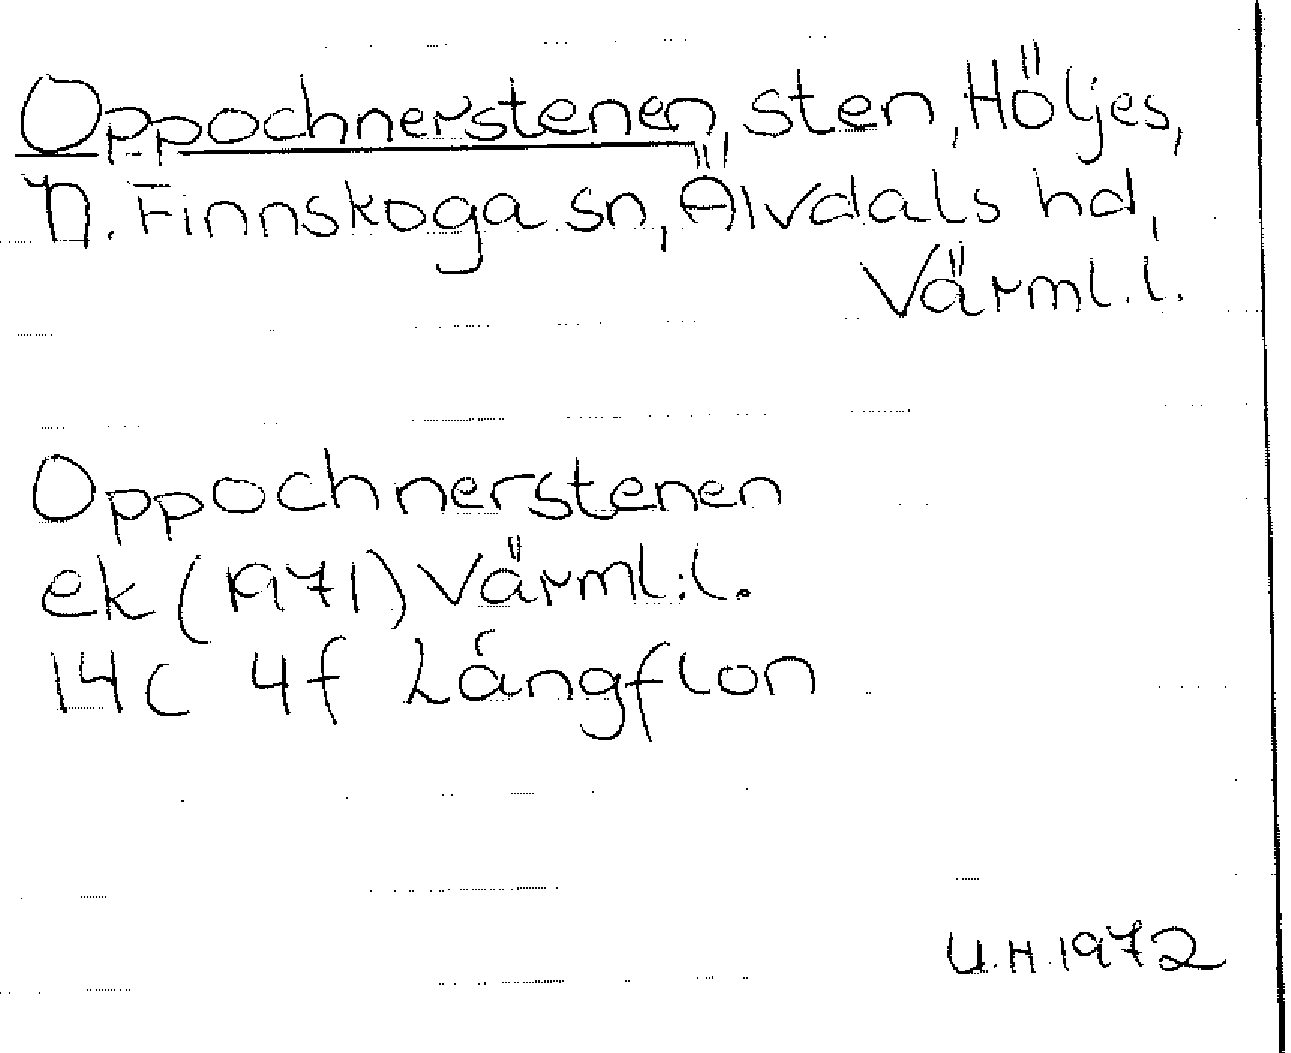 Oppochnerstenen, sten, Höljes,
N. Finnskoga sn, Älvdals hd,
Värml. l.
Oppochnerstenen
ek (1971) Värml. l.
14C 4f Långflon
U.H. 1972